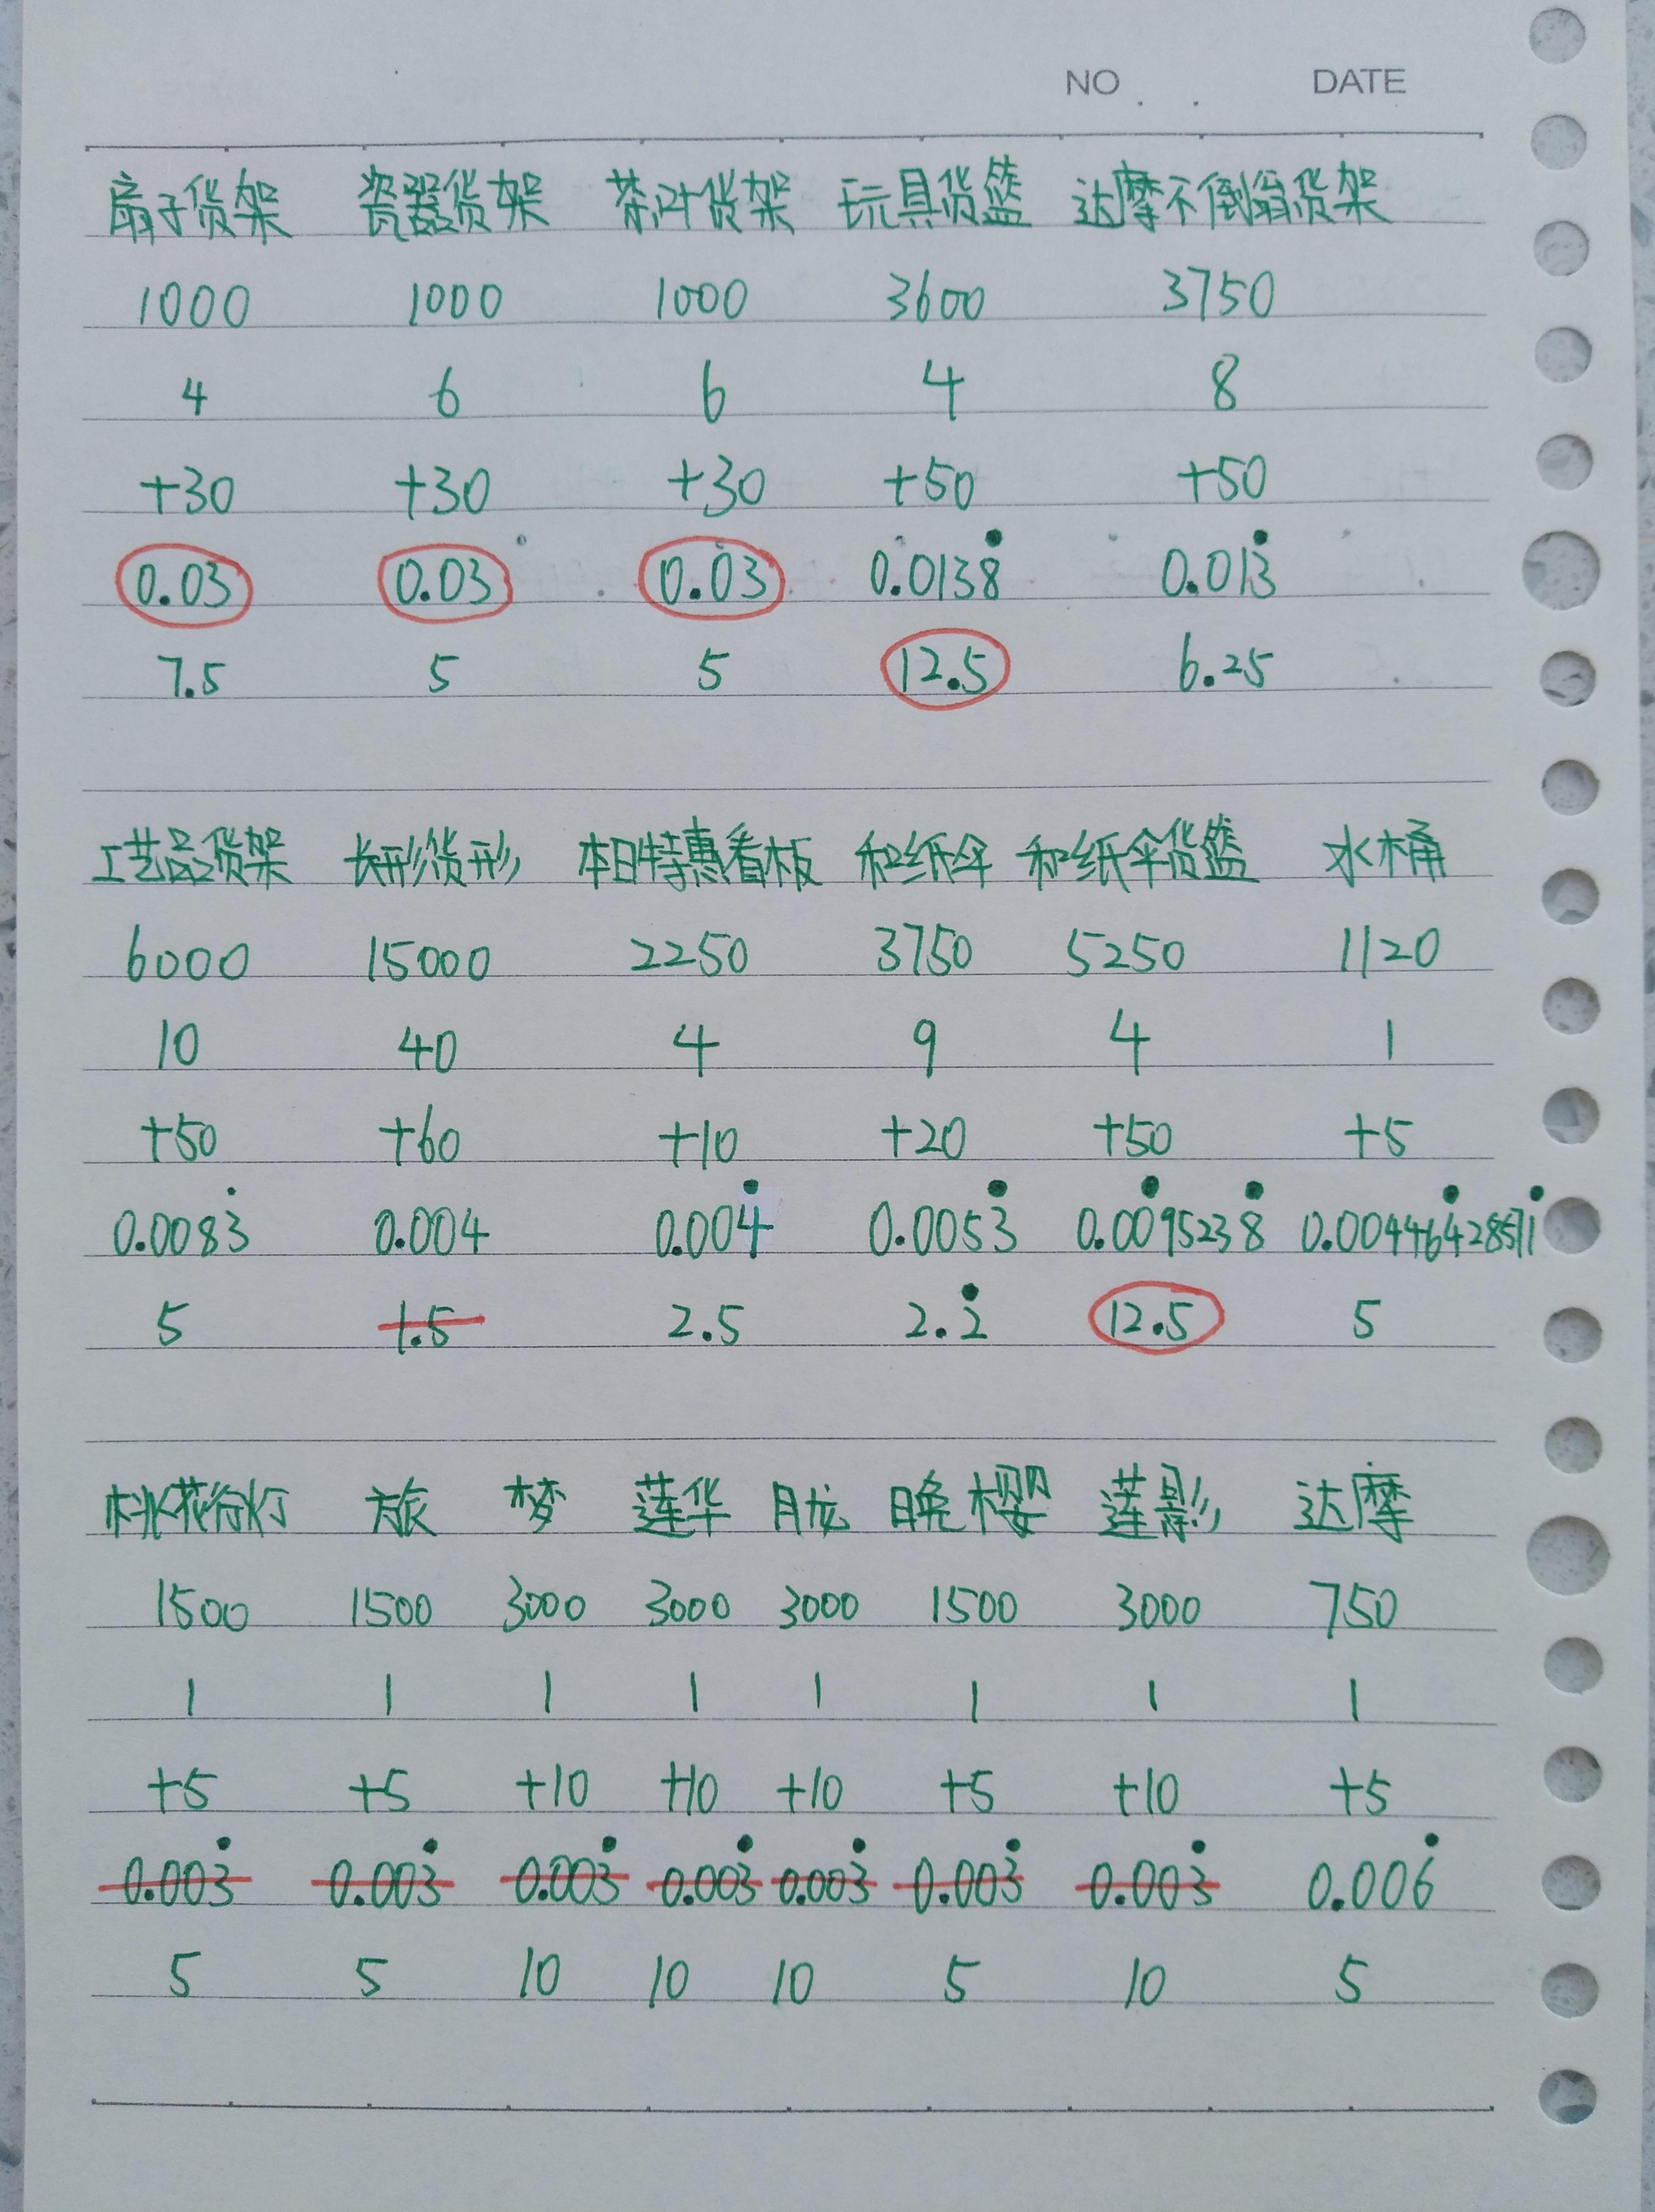 NO DATE
扇子货架 瓷器货架 茶叶货架 玩具货篮 达摩不倒翁货架
1000 1000 1000 3600 3750
4 6 6 4 8
+30 +30 +30 +50 +50
0.03 0.03 0.03 0.0138̇ 0.013̇
7.5 5 5 12.5 6.25
工艺品货架 长形货形 本日特惠看板 和纸伞 和纸伞货篮 水桶
6000 15000 2250 3750 5250 1120
10 40 4 9 4 1
+50 +60 +10 +20 +50 +5
0.0083̇ 0.004 0.004̇ 0.0053̇ 0.00̇95238̇ 0.004464̇28571̇
5 1.5 2.5 2.2̇ 12.5 5
桃花行灯 旅 梦 莲华 月龙 晚樱 莲影 达摩
1500 1500 3000 3000 3000 1500 3000 750
1 1 1 1 1 1 1 1
+5 +5 +10 +10 +10 +5 +10 +5
0.003̇ 0.003̇ 0.003̇ 0.003̇ 0.003̇ 0.003̇ 0.003̇ 0.006̇
5 5 10 10 10 5 10 5